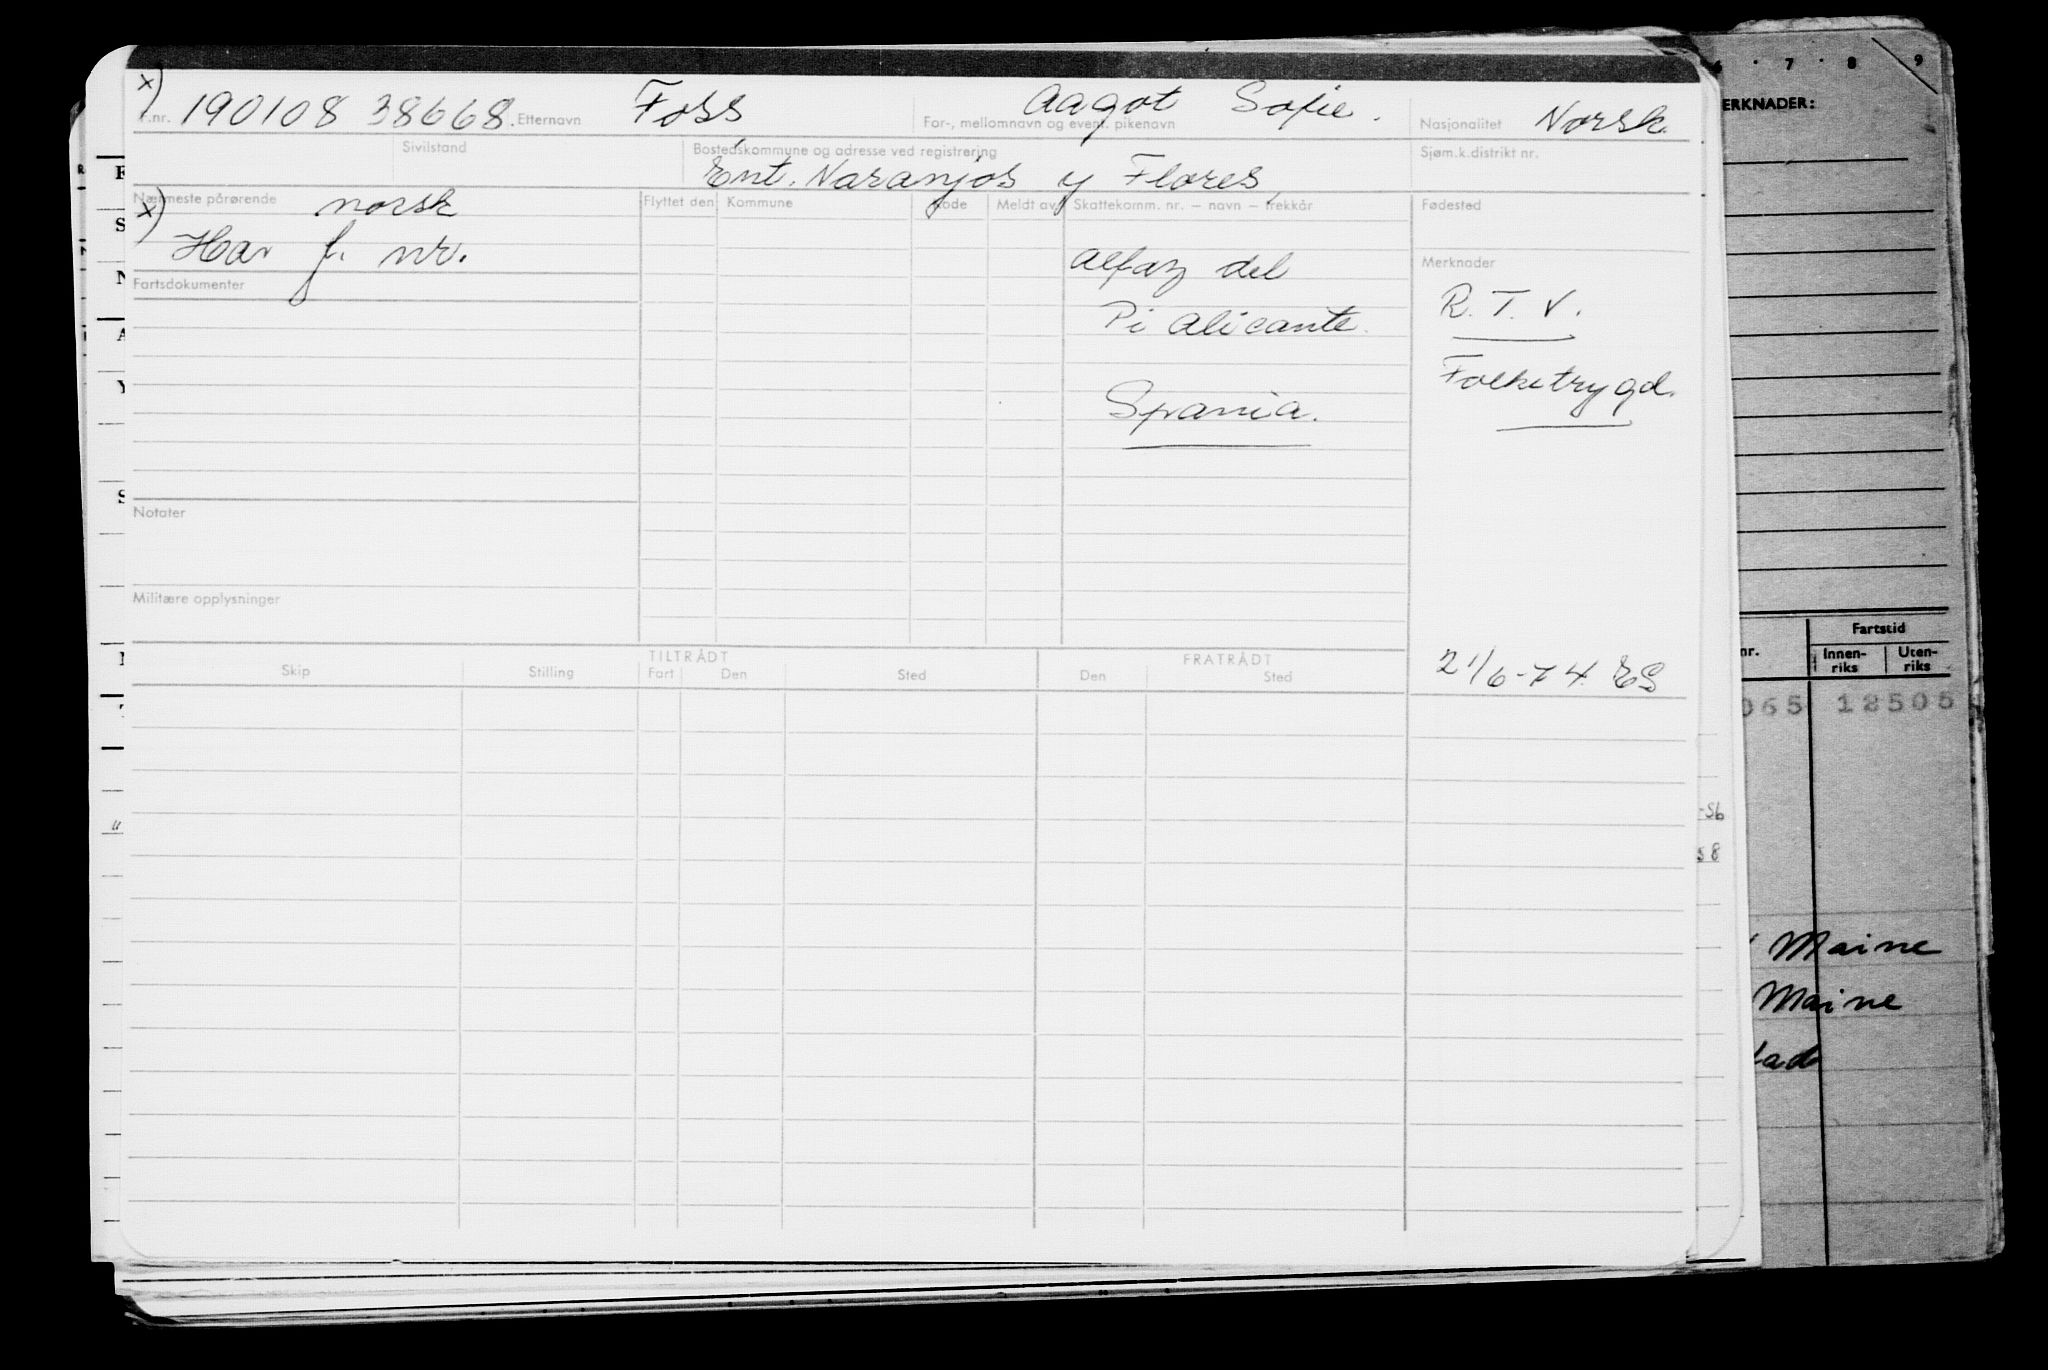 x)
F.nr. 190108 38668. Etternavn Foss For-, mellomnavn og event. pikenavn Aagot Sofie. Nasjonalitet Norsk.
Sivilstand Bostedskommune og adresse ved registrering Sjøm.k.distrikt nr.
Ent. Naranjos y Flores,
Nærmeste pårørende norsk Flyttet den Kommune Kode Meldt av Skattekomm. nr. – navn – trekkår Fødested
x) Har f. nr. Alfaz del
Merknader
Fartsdokumenter
Pi Alicante.
R. T. V.
Folketrygd.
Spania.
Notater
Militære opplysninger
TILTRÅDT FRATRÅDT
Skip Stilling Fart Den Sted Den Sted
21/6-74 ES
6 · 7 · 8 9
ERKNADER:
Fartstid
nr. Innen-riks Uten-riks
065 12505
-56
58
Maine
Maine